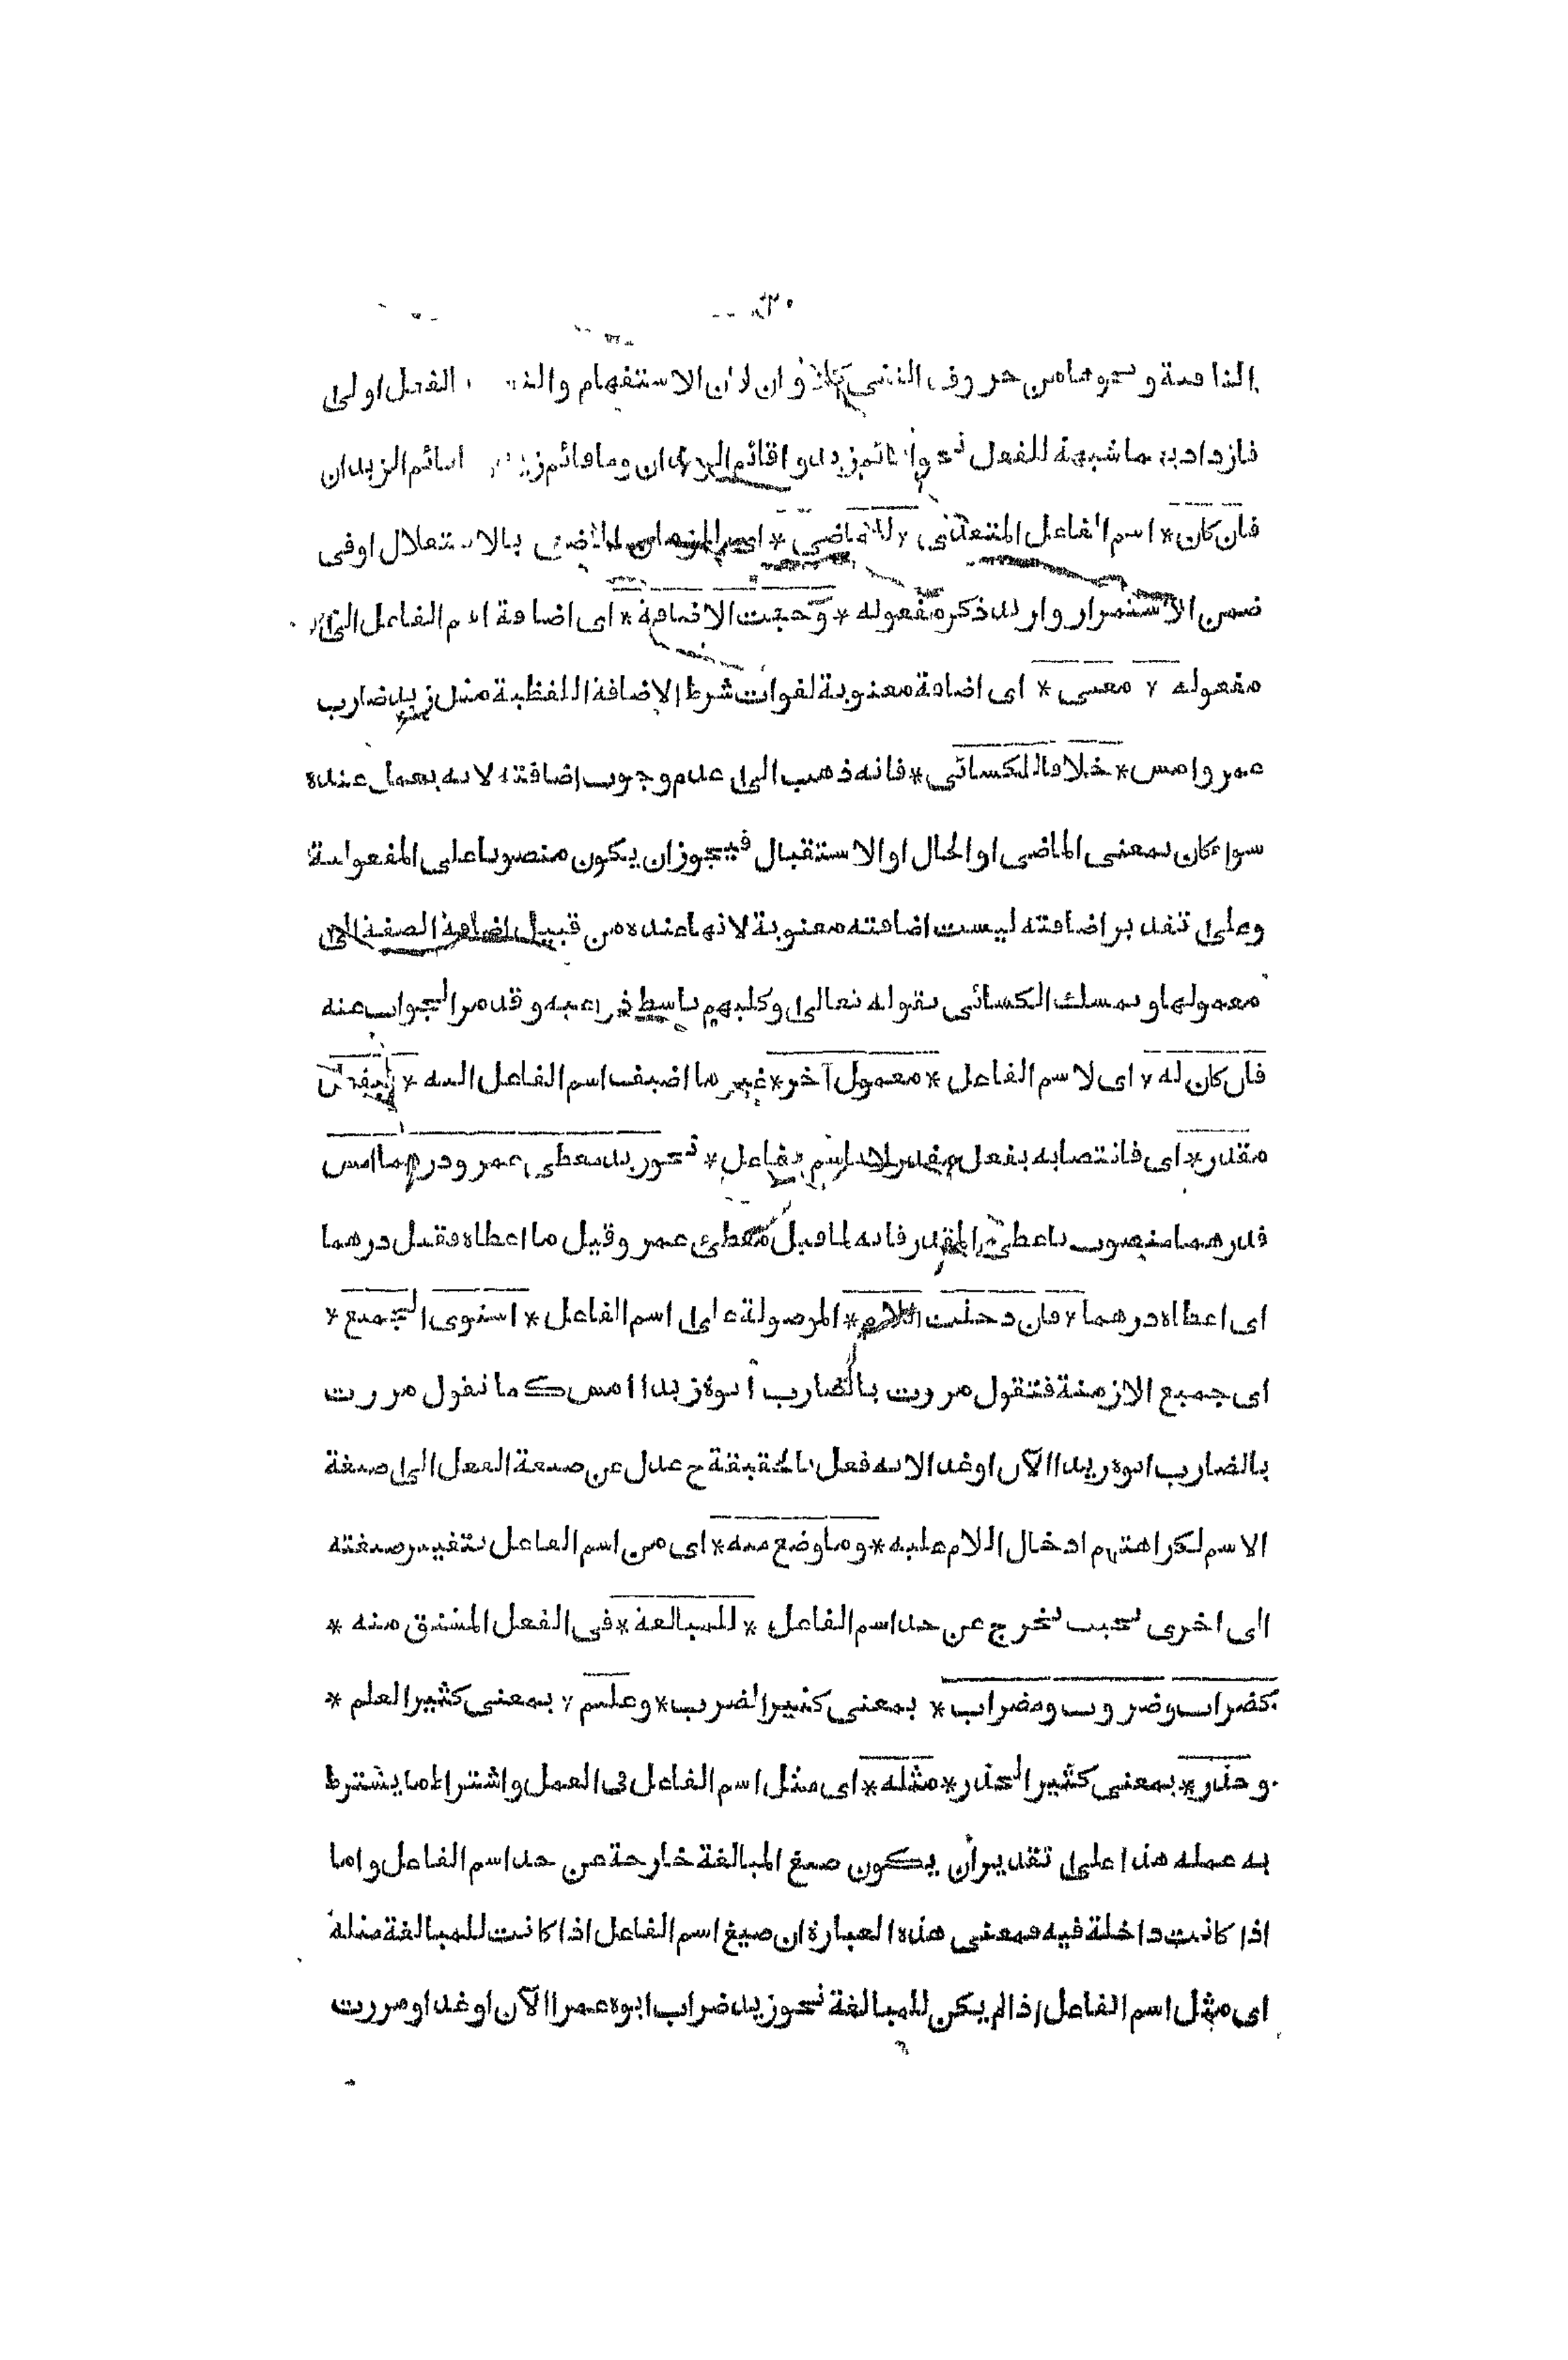 النافية ونحوهما من حروف النفي وان لان الاستفهام والفعل اولى
فازداد بهما شبهه للفعل نحو اقائم زيد و اقائم الزيدان وما قائم زيد اقائم الزيدان
فان كان * اسم الفاعل المتعدى * للماضى * اى للزمان الماضى بالاستقلال او فى
ضمن الاستمرار واريد ذكر مفعوله * وجبت الاضافة * اى اضافة اسم الفاعل الى
مفعوله * معنى * اى اضافة معنوية لفوات شرط الاضافة اللفظية مثل زيد ضارب
عمرو امس * خلافا للكسائى * فانه ذهب الى عدم وجوب اضافته لانه يعمل عنده
سواء كان بمعنى الماضى او الحال او الاستقبال فيجوز ان يكون منصوبا على المفعولية
وعلى تقدير اضافته ليست اضافته معنوية لانها عنده من قبيل اضافة الصفة الى
معمولها وتمسك الكسائى بقوله تعالى وكلبهم باسط ذراعيه وقد مر الجواب عنه
فان كان له * اى لاسم الفاعل * معمول آخر * غير ما اضيف اسم الفاعل اليه * فبفعل
مقدر * اى فانتصابه بفعل مقدر لا باسم الفاعل * نحو زيد معطى عمرو درهما امس
فدرهما منصوب باعطى المقدر فانه لما قيل معطى عمرو قيل ما اعطاه فقيل درهما
اى اعطاه درهما * فان دخلت اللام * الموصولة على اسم الفاعل * استوى الجميع *
اى جميع الازمنة فتقول مررت بالضارب ابوه زيدا امس كما نقول مررت
بالضارب ابوه زيدا الآن او غدا لانه فعل بالحقيقة ح عدل عن صيغة الفعل الى صيغة
الاسم لكراهتهم ادخال اللام عليه * وما وضع منه * اى من اسم الفاعل بتغيير صيغته
الى اخرى بحيث يخرج عن حد اسم الفاعل * للمبالغة * فى الفعل المشتق منه *
كضراب وضروب ومضراب * بمعنى كثير الضرب * وعليم * بمعنى كثير العلم *
وحذر * بمعنى كثير الحذر * مثله * اى مثل اسم الفاعل فى العمل واشتراط ما يشترط
به عمله هذا على تقدير ان يكون صيغ المبالغة خارجة عن حد اسم الفاعل واما
اذا كانت داخلة فيه فمعنى هذه العبارة ان صيغ اسم الفاعل اذا كانت للمبالغة مثله
اى مثل اسم الفاعل اذا لم يكن للمبالغة نحو زيد ضراب ابوه عمرا الآن او غدا ومررت